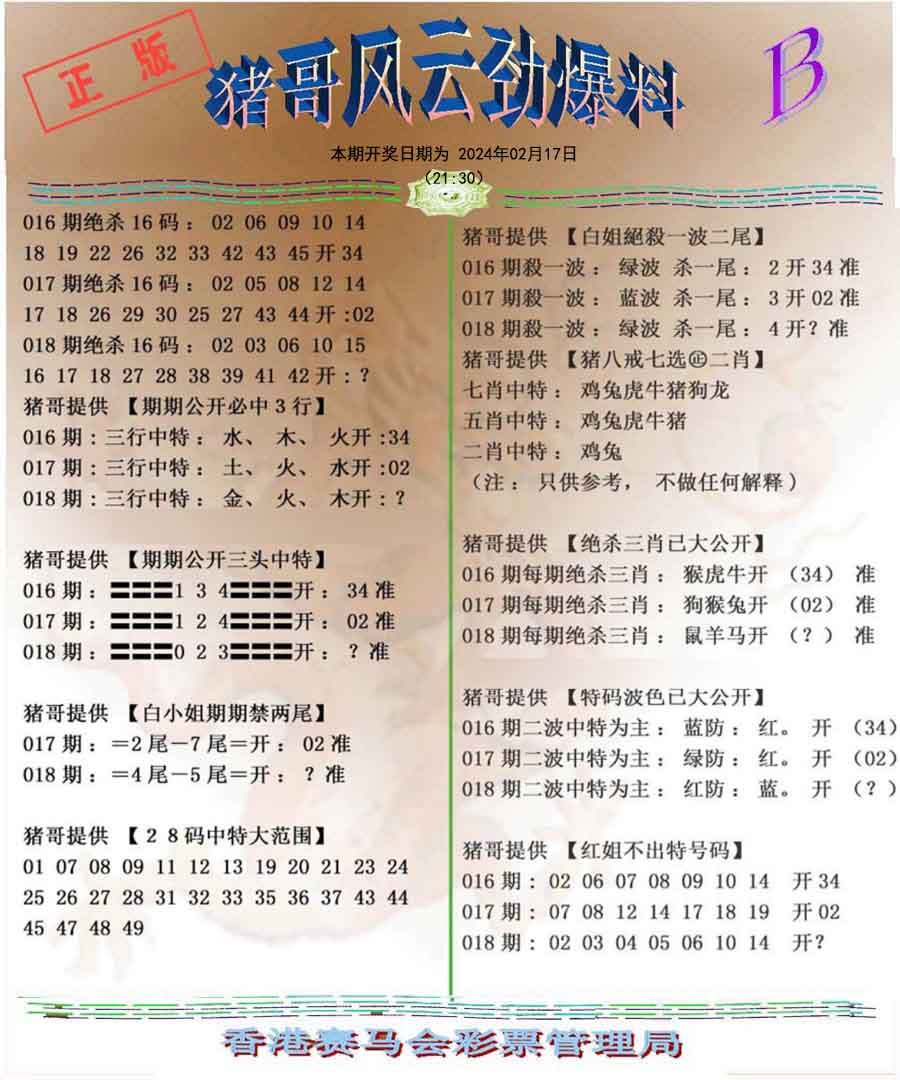 正版
猪哥风云劲爆料
B
本期开奖日期为 2024年02月17日
(21:30)
016期绝杀16码: 02 06 09 10 14
18 19 22 26 32 33 42 43 45开34
017期绝杀16码: 02 05 08 12 14
17 18 26 29 30 25 27 43 44开:02
018期绝杀16码: 02 03 06 10 15
16 17 18 27 28 38 39 41 42开:?
猪哥提供 【期期公开必中3行】
016期:三行中特: 水、 木、 火开:34
017期:三行中特: 土、 火、 水开:02
018期:三行中特: 金、 火、 木开:?
猪哥提供 【期期公开三头中特】
016期:〓〓〓1 3 4〓〓〓开: 34准
017期:〓〓〓1 2 4〓〓〓开: 02准
018期:〓〓〓0 2 3〓〓〓开: ?准
猪哥提供 【白小姐期期禁两尾】
017期:=2尾-7尾=开: 02准
018期:=4尾-5尾=开: ?准
猪哥提供 【28码中特大范围】
01 07 08 09 11 12 13 19 20 21 23 24
25 26 27 28 31 32 33 35 36 37 43 44
45 47 48 49
猪哥提供 【白姐絕殺一波二尾】
016期殺一波: 绿波 杀一尾: 2开34准
017期殺一波: 蓝波 杀一尾: 3开02准
018期殺一波: 绿波 杀一尾: 4开?准
猪哥提供 【猪八戒七选二肖】
七肖中特: 鸡兔虎牛猪狗龙
五肖中特: 鸡兔虎牛猪
二肖中特: 鸡兔
(注: 只供参考, 不做任何解释)
猪哥提供 【绝杀三肖已大公开】
016期每期绝杀三肖: 猴虎牛开 (34) 准
017期每期绝杀三肖: 狗猴兔开 (02) 准
018期每期绝杀三肖: 鼠羊马开 (?) 准
猪哥提供 【特码波色已大公开】
016期二波中特为主: 蓝防: 红。 开 (34)
017期二波中特为主: 绿防: 红。 开 (02)
018期二波中特为主: 红防: 蓝。 开 (?)
猪哥提供 【红姐不出特号码】
016期: 02 06 07 08 09 10 14 开34
017期: 07 08 12 14 17 18 19 开02
018期: 02 03 04 05 06 10 14 开?
香港赛马会彩票管理局